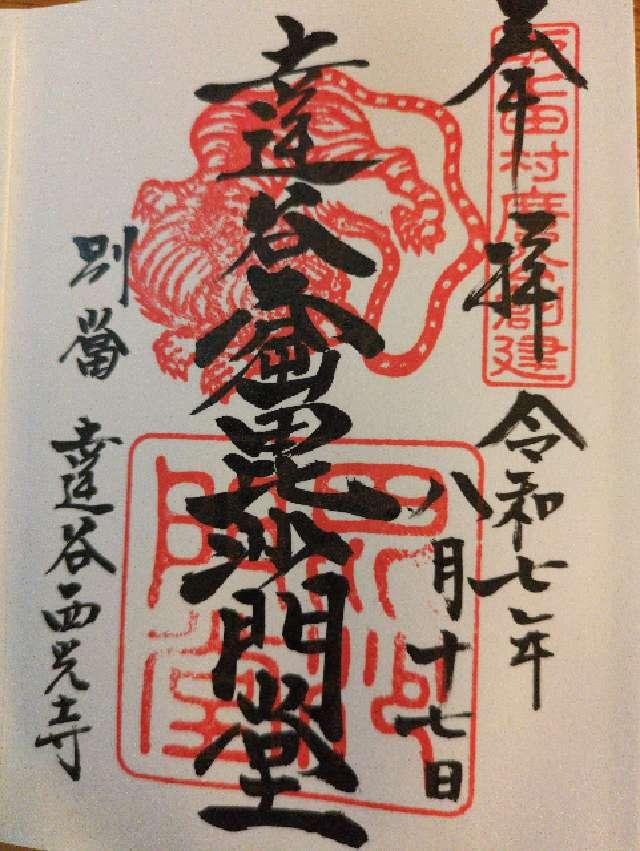 奉拝
坂上田村麿公創建
令和七年
八月十七日
達谷窟毘沙門堂
毘沙
門堂
別當
達谷西光寺